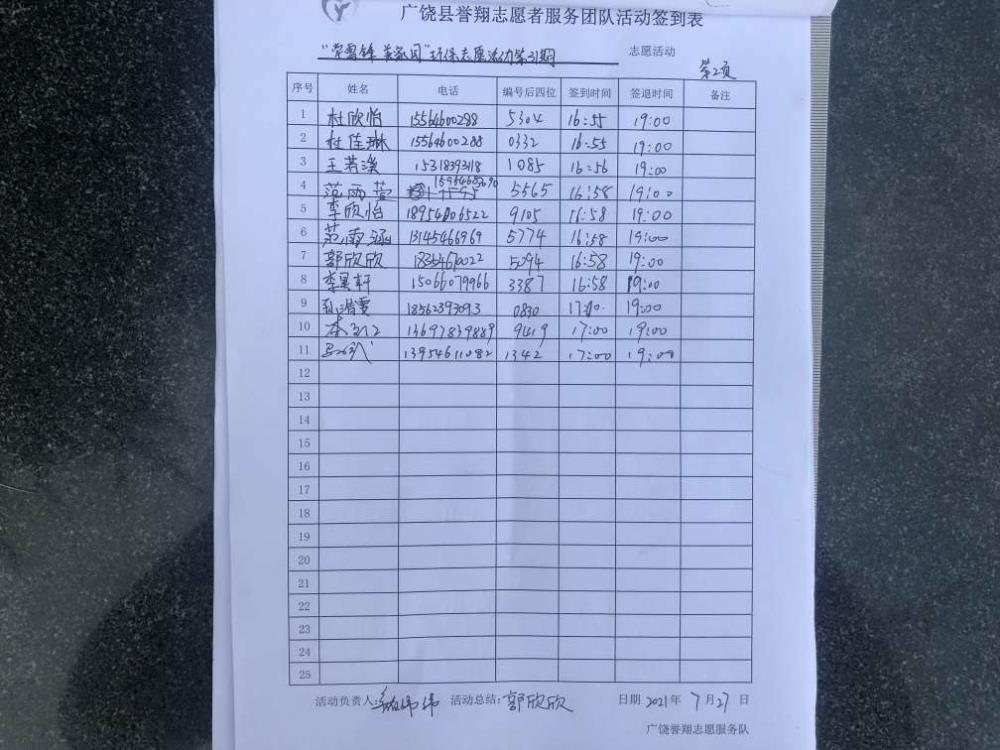 广饶县誉翔志愿者服务团队活动签到表
"学雷锋 美家园"环保志愿活动第31期 志愿活动
第2页
序号 姓名 电话 编号后四位 签到时间 签退时间 备注
1 杜欣怡 15564600288 5304 16:55 19:00
2 杜佳琳 15564600288 0332 16:55 19:00
3 王若溪 15318393118 1085 16:56 19:00
4 范雨萱 5565 16:58 19:00
5 李欣怡 18954806522 9105 16:58 19:00
6 范雨涵 13145466969 5774 16:58 19:00
7 郭欣欣 5094 16:58 19:00
8 李昊轩 15066079966 3387 16:58 19:00
9 18562393093 0830 17:00 19:00
10 13697839889 9419 17:00 19:00
11 13954611082 1342 17:00 19:00
12
13
14
15
16
17
18
19
20
21
22
23
24
25
活动负责人: 活动总结:郭欣欣 日期 2021年 7月27日
广饶誉翔志愿服务队